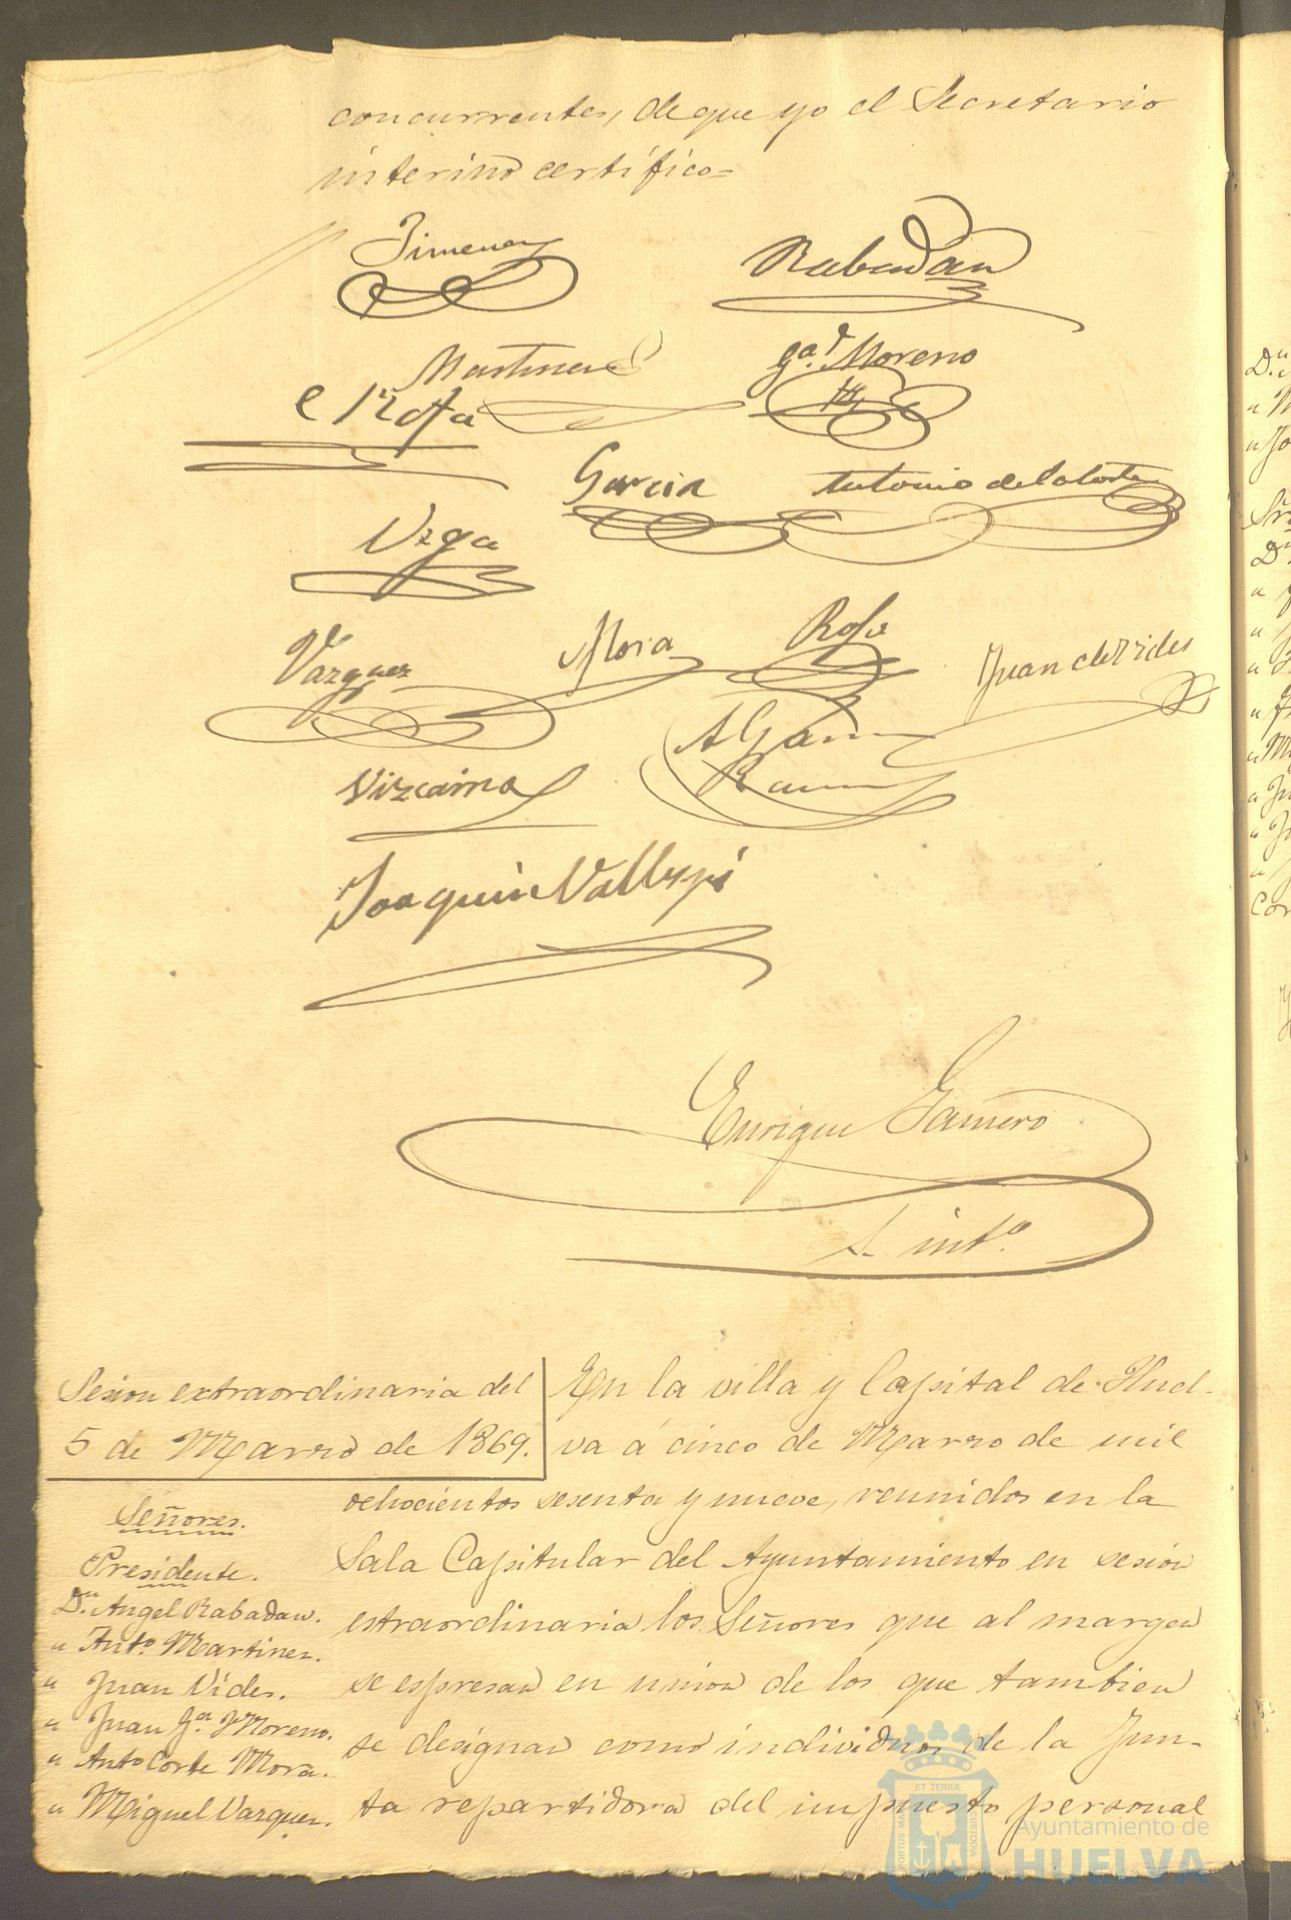 concurrentes, de que yo el Secretario
interino certifico=
Jimenez
Rabadan
Martinez
Ga. Moreno
Garcia
Antonio de la Corte
Vega
Vazquez
Mora
Rosa
Juan de Vides
Vizcaino
Joaquin Vallespi
Enrique Gamero
S. intº.
Sesion extraordinaria del
5 de Marzo de 1869.
Señores.
Presidente.
Dn. Angel Rabadan.
" Antº. Martinez.
" Juan Vides.
" Juan Ga. Moreno.
" Antº Corte Mora.
" Miguel Vazquez.
En la villa y Capital de Huel-
va á cinco de Marzo de mil
ochocientos sesenta y nueve, reunidos en la
Sala Capitular del Ayuntamiento en sesion
estraordinaria los Señores que al margen
se espresan en union de los que tambien
se designan como individuos de la Jun-
ta repartidora del impuesto personal
ET TERRÆ
PORTUS MARIS
CUSTODIA
Ayuntamiento de
HUELVA